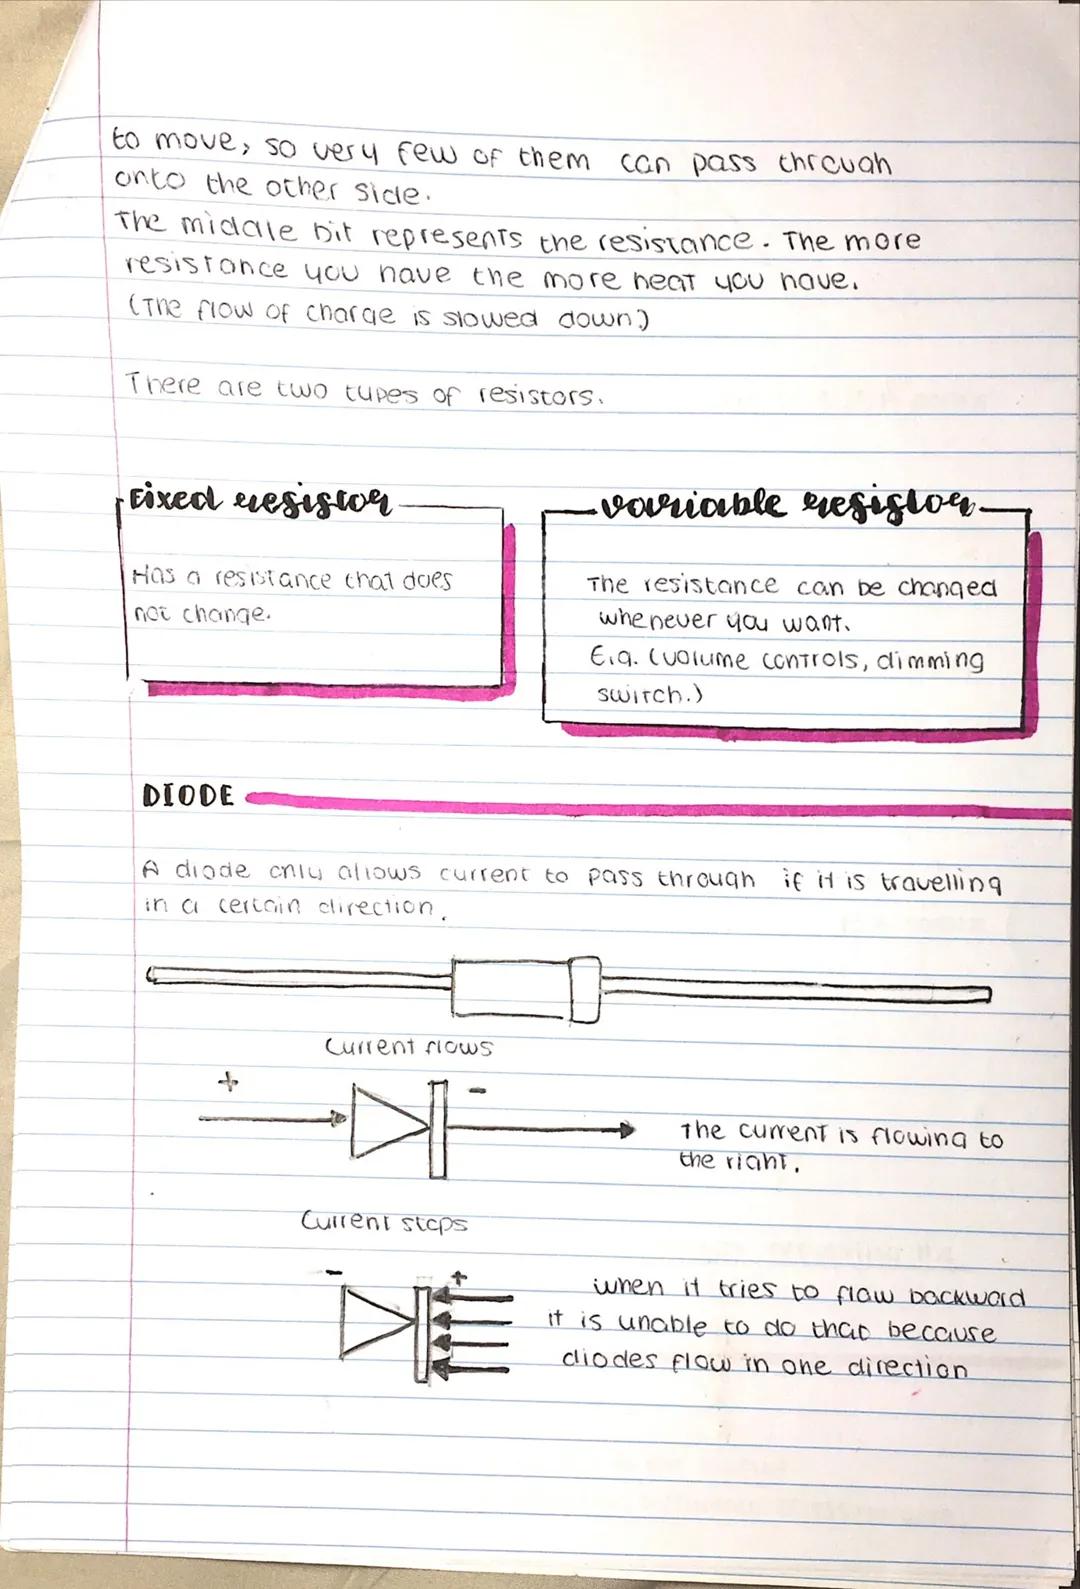 to move, so very few of them can pass through
onto the other side.
The middle bit represents the resistance. The more
resistance you have the more heat you have.
(The flow of charge is slowed down)
There are two types of resistors.
Fixed resistor
Has a resistance that does
not change.
variable resistor
The resistance can be changed
whenever you want.
E.g. (volume controls, dimming
switch.)
DIODE
A diode only allows current to pass through if it is travelling
in a certain direction.
Current flows
+ -
The current is flowing to
the right.
Current stops
- +
when it tries to flow backward
it is unable to do that because
diodes flow in one direction